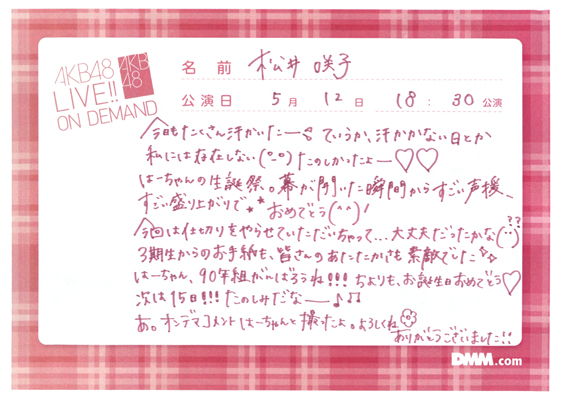 AKB48
LIVE!!
ON DEMAND
AKB
48
名 前 松井 咲子
公演日 5月 12日 18:30公演
今日もたくさん汗かいたー ていうか、汗かかない日とか
私には存在しない(°-°) たのしかったよー♡♡
はーちゃんの生誕祭。幕が開いた瞬間からすごい声援、
すごい盛り上がりで おめでとう(^^)!
今回は仕切りをやらせていただいちゃって...大丈夫だったかな(··)??
3期生からのお手紙も、皆さんのあたたかさも素敵でした
はーちゃん、90年組がんばろうね!!! ちよりも、お誕生日おめでとう♡
次は15日!!! たのしみだなー♪♫
あ。オンデマコメントはーちゃんと撮ったよ。よろしくね
ありがとうございました!!
DMM.com